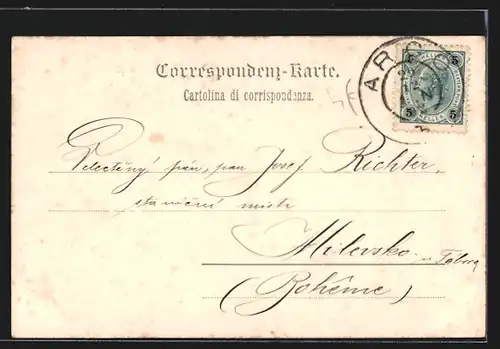 Correspondenz-Karte.
Cartolina di corrispondenza.
ARCO
5 5
5 HELLER 5
Velectěný pán, pan Josef Richter,
staniční mistr
Milevsko u Tábora
(Bohême)